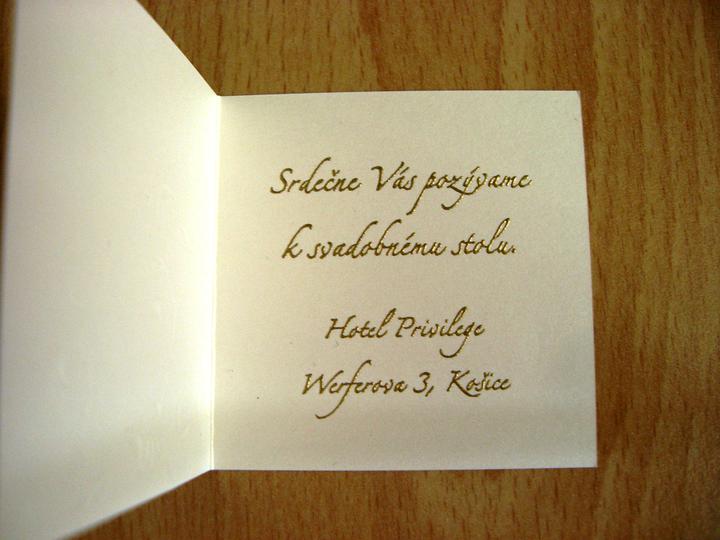 Srdečne Vás pozývame
k svadobnému stolu.
Hotel Privilege
Werferova 3, Košice